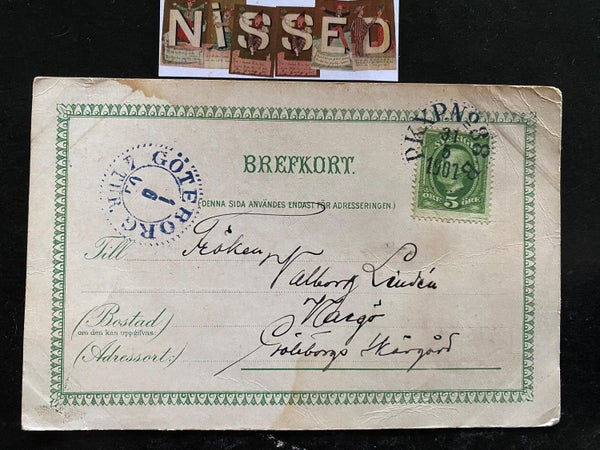 NiSSED
BREFKORT.
(DENNA SIDA ANVÄNDES ENDAST FÖR ADRESSERINGEN.)
GÖTEBORG
1
6
PKXP.No.38
31
5
1901
SVERIGE
ÖRE 5 ÖRE
Till Fröken
Valborg Lindén
(Bostad)
om den kan uppgifvas:
(Adressort:)
Göteborgs Skärgård